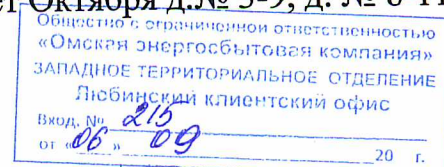 ет Октября д.№ 3-9, д. № 8
Общество с ограниченной ответственностью
«Омская энергосбытовая компания»
ЗАПАДНОЕ ТЕРРИТОРИАЛЬНОЕ ОТДЕЛЕНИЕ
Любинский клиентский офис
Вход. № 215
от «06» 09 20 г.